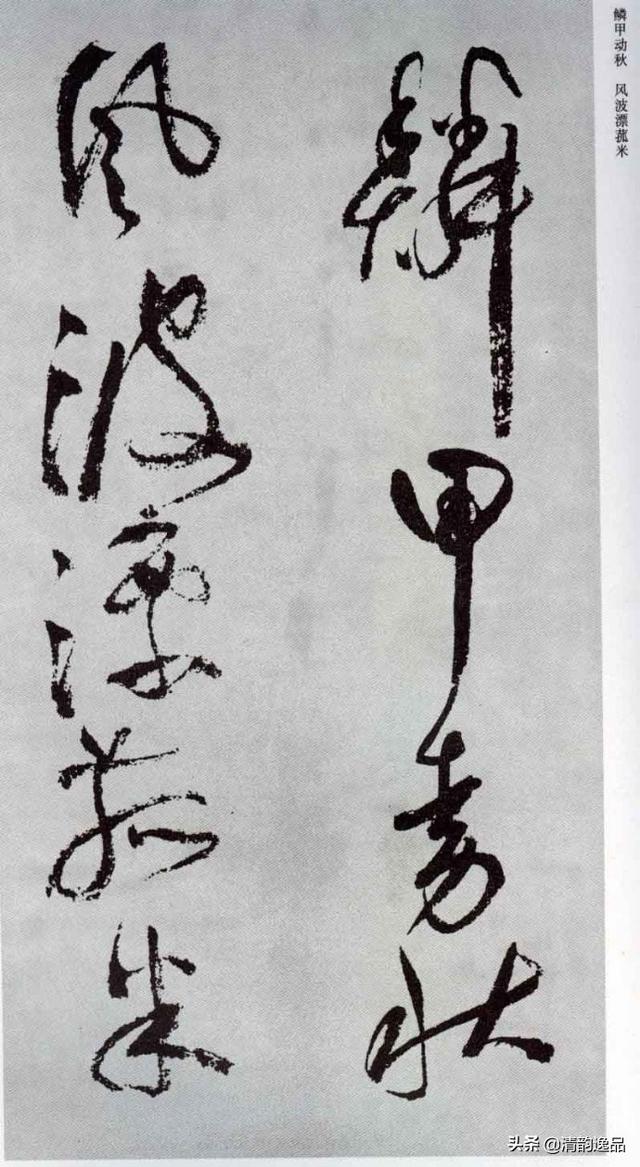 鳞甲动秋 风波漂菰米
鱗甲動秋
風波漂菰米
头条 @清韵逸品